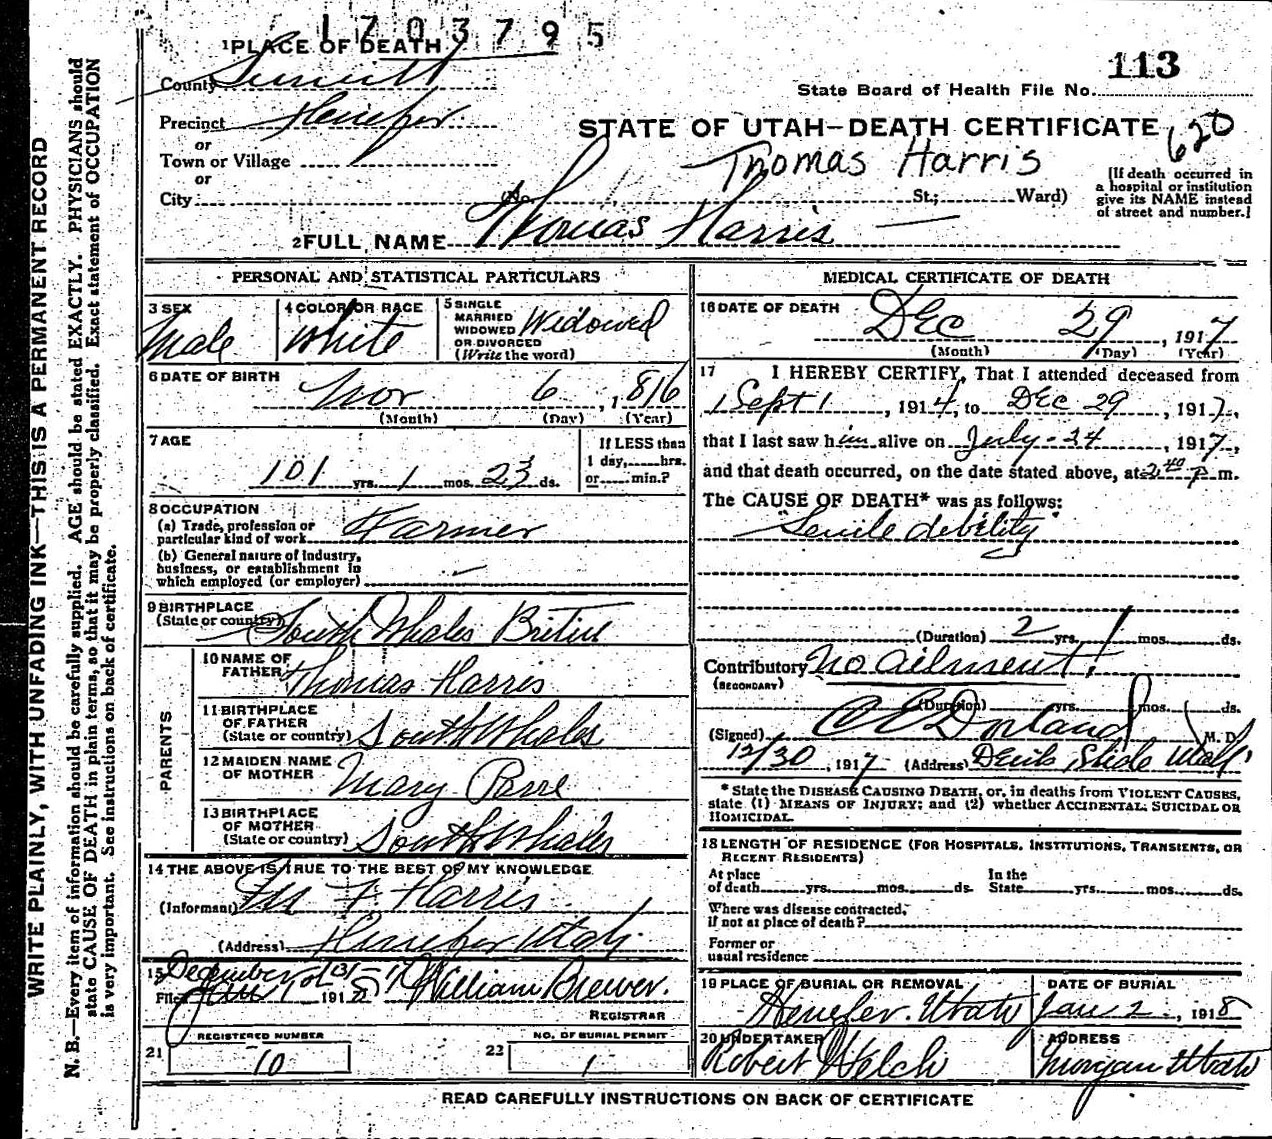 1703795
1 PLACE OF DEATH
113
County Summit
State Board of Health File No.
Precinct Henefer
STATE OF UTAH—DEATH CERTIFICATE 620
or
Town or Village
Thomas Harris
or
City No. St.; Ward)
(If death occurred in
a hospital or institution
give its NAME instead
of street and number.)
2 FULL NAME Thomas Harris
PERSONAL AND STATISTICAL PARTICULARS
3 SEX
Male
4 COLOR OR RACE
White
5 SINGLE
MARRIED
WIDOWED
OR DIVORCED
(Write the word)
Widowed
6 DATE OF BIRTH
Nov 6, 1816
(Month) (Day) (Year)
7 AGE
101 yrs. 1 mos. 23 ds.
If LESS than
1 day, hrs.
or min.?
8 OCCUPATION
(a) Trade, profession or
particular kind of work Farmer
(b) General nature of industry,
business, or establishment in
which employed (or employer)
9 BIRTHPLACE
(State or country) South Whales
PARENTS
10 NAME OF
FATHER Thomas Harris
11 BIRTHPLACE
OF FATHER
(State or country) South Whales
12 MAIDEN NAME
OF MOTHER Mary
13 BIRTHPLACE
OF MOTHER
(State or country) South Whales
14 THE ABOVE IS TRUE TO THE BEST OF MY KNOWLEDGE
(Informant) F. Harris
(Address) Henefer Utah
15 December 31st 17
Filed Jan 1 191 William Brewer.
REGISTRAR
REGISTERED NUMBER
21 10
NO. OF BURIAL PERMIT
22 1
MEDICAL CERTIFICATE OF DEATH
16 DATE OF DEATH
Dec 29, 1917
(Month) (Day) (Year)
17 I HEREBY CERTIFY, That I attended deceased from
Sept 1, 1914, to Dec 29, 1917,
that I last saw him alive on July-24, 1917,
and that death occurred, on the date stated above, at 2 40 P m.
The CAUSE OF DEATH* was as follows:
"Senile debility"
(Duration) 2 yrs. mos. ds.
Contributory No ailment!
(SECONDARY)
(Duration) yrs. mos. ds.
(Signed) C E Dorland M. D.
12/30, 1917 (Address) Devils Slide Utah
* State the DISEASE CAUSING DEATH, or, in deaths from VIOLENT CAUSES,
state (1) MEANS OF INJURY; and (2) whether ACCIDENTAL, SUICIDAL OR
HOMICIDAL.
18 LENGTH OF RESIDENCE (FOR HOSPITALS, INSTITUTIONS, TRANSIENTS, OR
RECENT RESIDENTS)
At place
of death yrs. mos. ds.
In the
State yrs. mos. ds.
Where was disease contracted,
if not at place of death?
Former or
usual residence
19 PLACE OF BURIAL OR REMOVAL
Henefer. Utah
DATE OF BURIAL
Jan 2, 1918
20 UNDERTAKER
Robert Welch
ADDRESS
Morgan Utah
READ CAREFULLY INSTRUCTIONS ON BACK OF CERTIFICATE
WRITE PLAINLY, WITH UNFADING INK—THIS IS A PERMANENT RECORD
N. B.—Every item of information should be carefully supplied. AGE should be stated EXACTLY. PHYSICIANS should
state CAUSE OF DEATH in plain terms, so that it may be properly classified. Exact statement of OCCUPATION
is very important. See instructions on back of certificate.